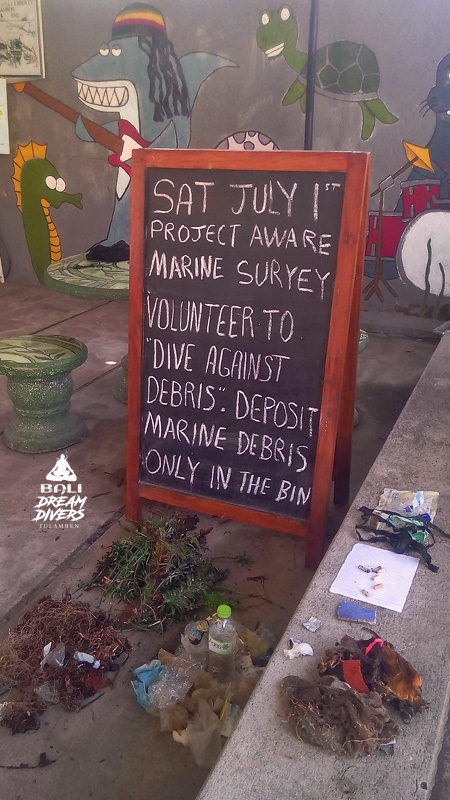 SAT JULY 1ST
PROJECT AWARE
MARINE SURYEY
VOLUNTEER TO
"DIVE AGAINST
DEBRIS". DEPOSIT
MARINE DEBRIS
ONLY IN THE BIN
BALI
DREAM
DIVERS
TULAMBEN